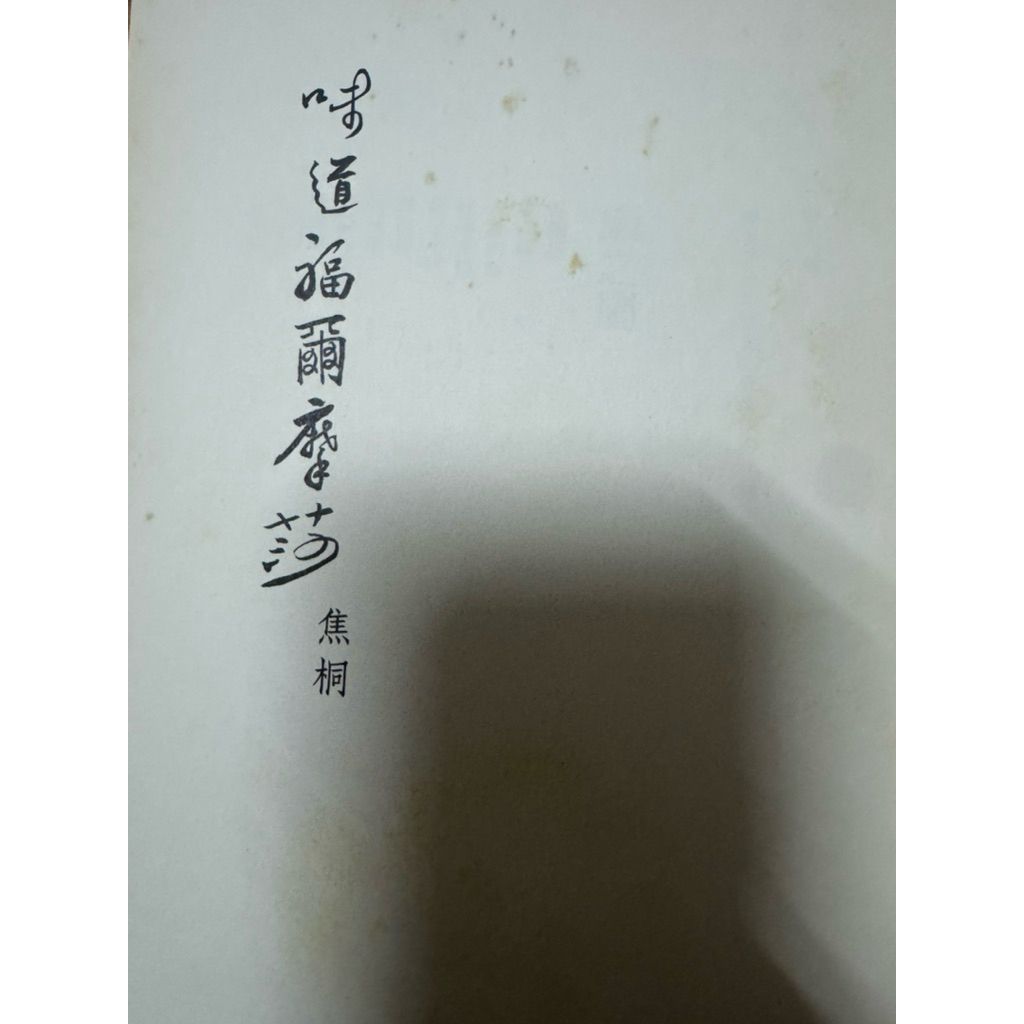 味道福爾摩莎
焦桐